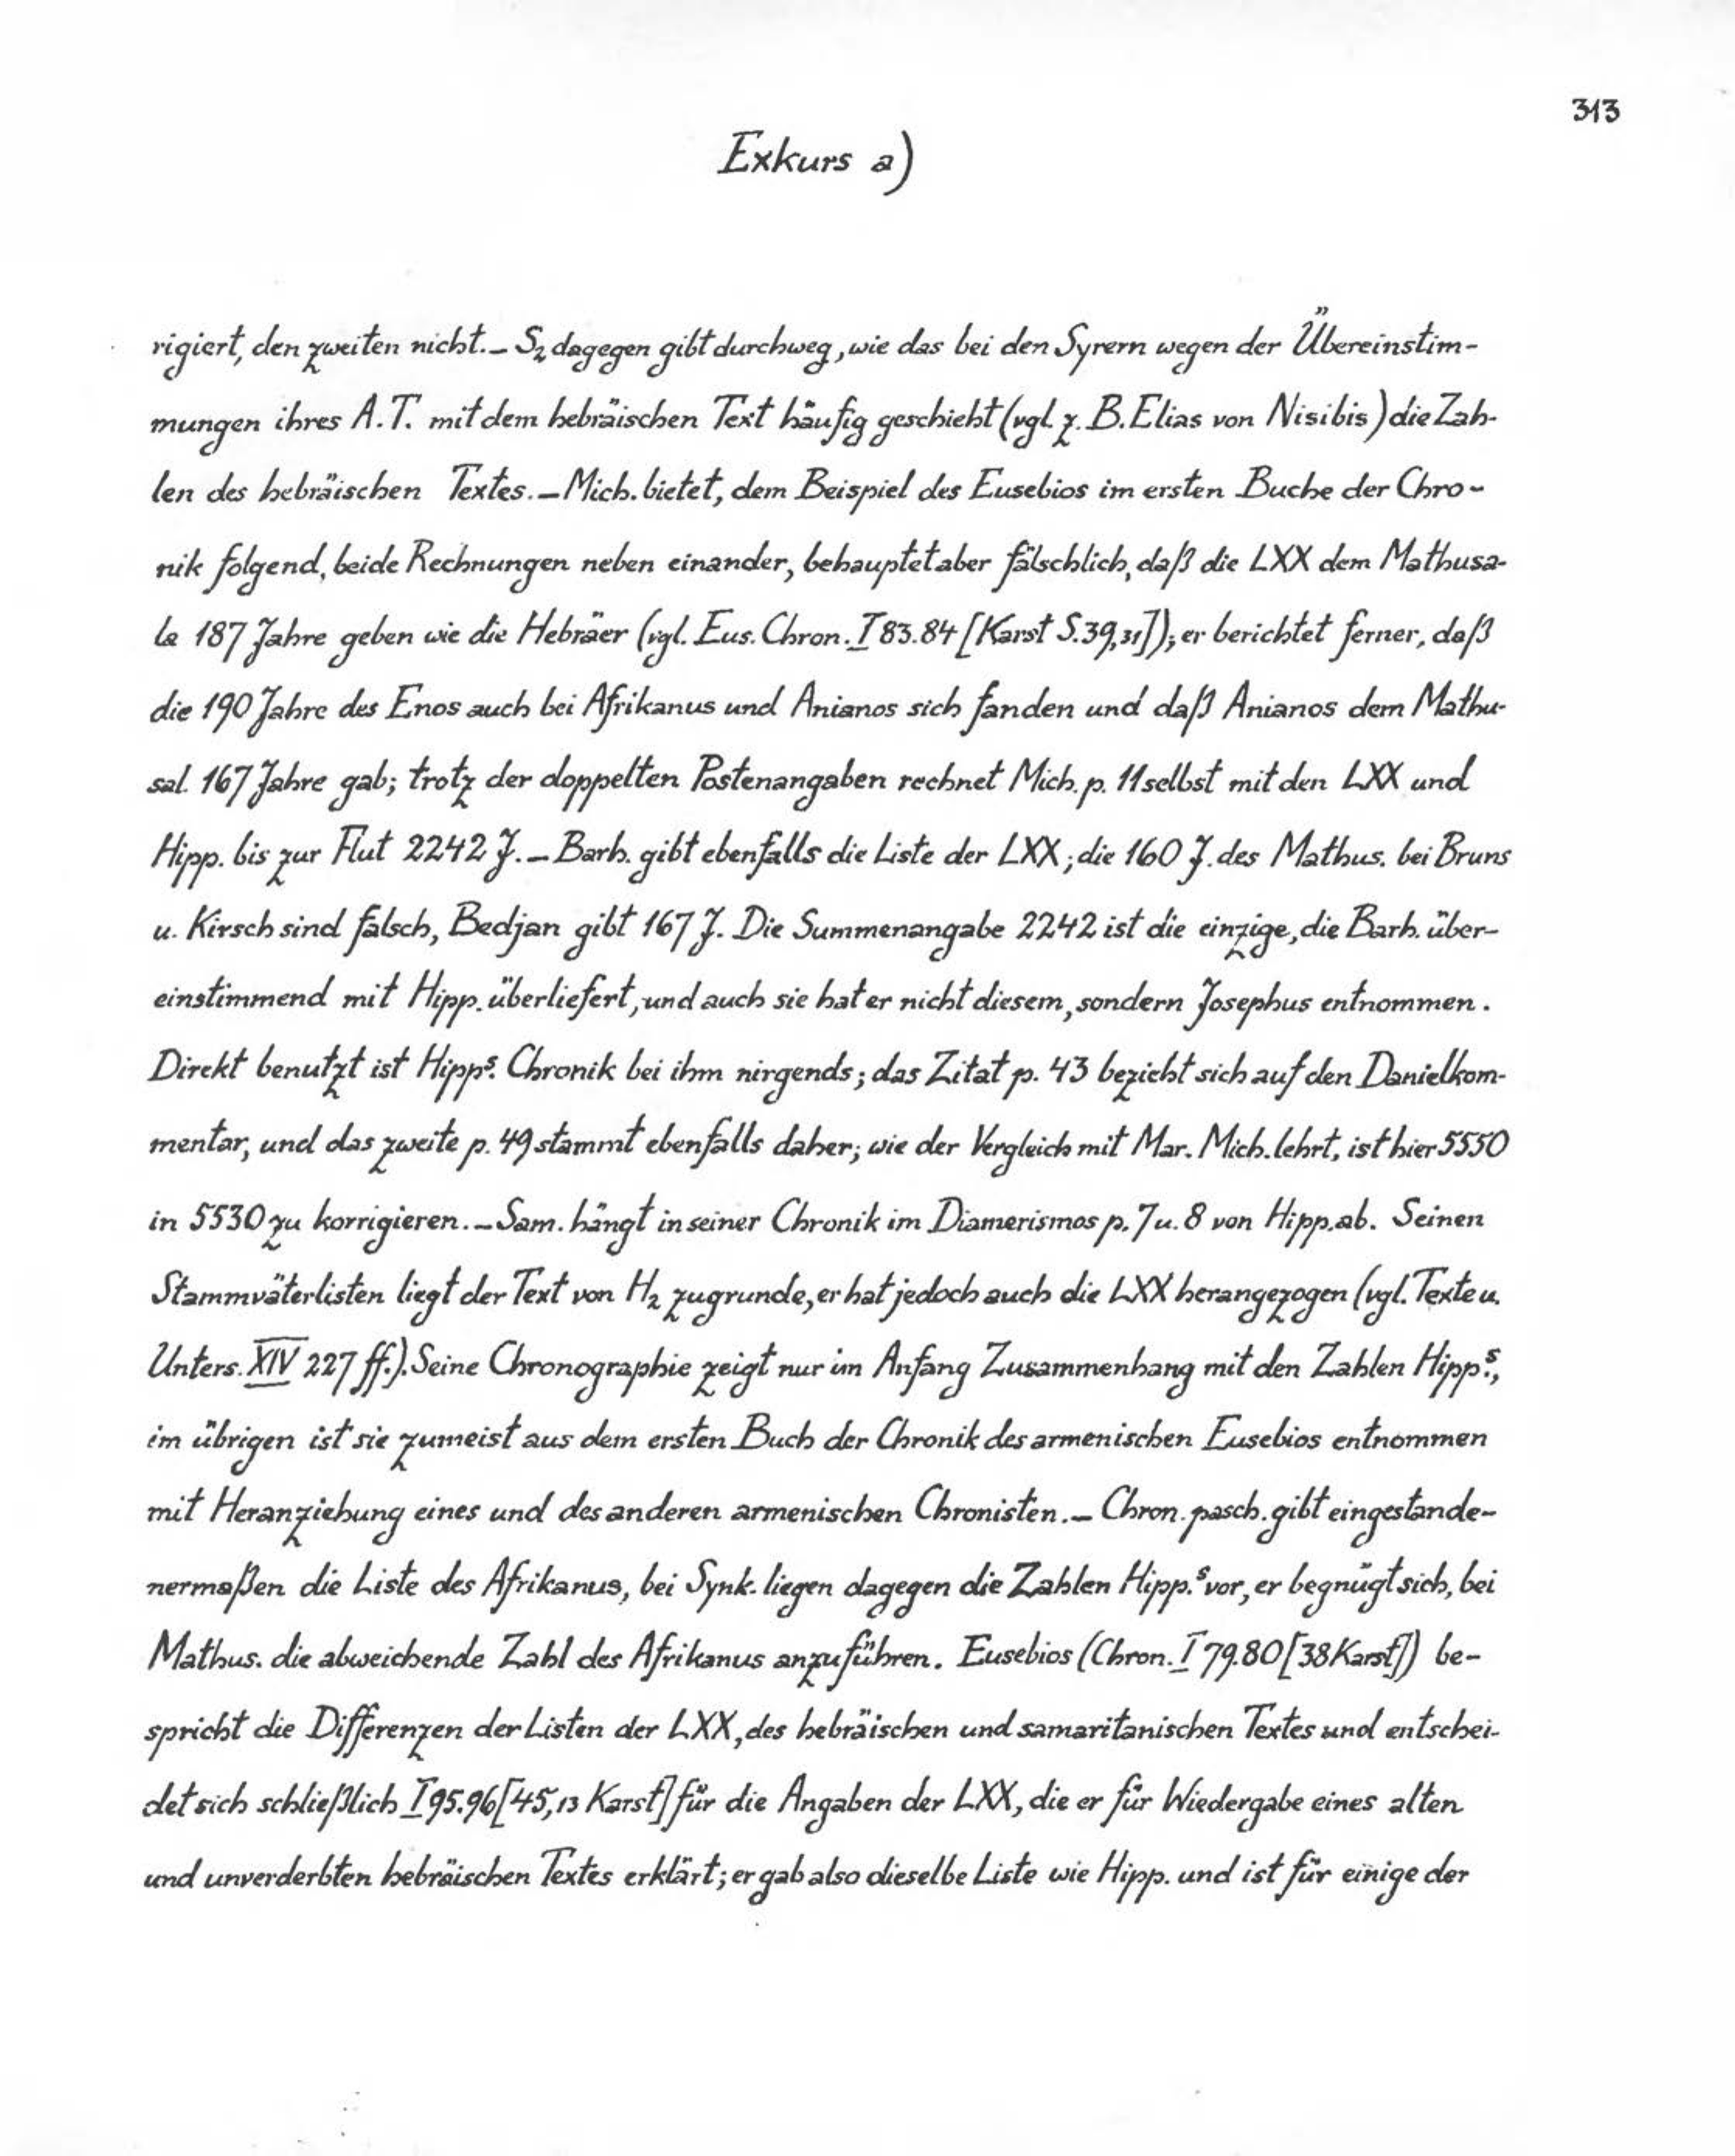 313
Exkurs a)
rigiert, den zweiten nicht. – S₂ dagegen gibt durchweg, wie das bei den Syrern wegen der Übereinstim-
mungen ihres A.T. mit dem hebräischen Text häufig geschieht (vgl. z. B. Elias von Nisibis) die Zah-
len des hebräischen Textes. – Mich. bietet, dem Beispiel des Eusebios im ersten Buche der Chro-
nik folgend, beide Rechnungen neben einander, behauptet aber fälschlich, daß die LXX dem Mathusa-
la 187 Jahre geben wie die Hebräer (vgl. Eus. Chron. I 83.84 [Karst S. 39,31]); er berichtet ferner, daß
die 190 Jahre des Enos auch bei Afrikanus und Anianos sich fanden und daß Anianos dem Mathu-
sal. 167 Jahre gab; trotz der doppelten Postenangaben rechnet Mich. p. 11 selbst mit den LXX und
Hipp. bis zur Flut 2242 J. – Barh. gibt ebenfalls die Liste der LXX; die 160 J. des Mathus. bei Bruns
u. Kirsch sind falsch, Bedjan gibt 167 J. Die Summenangabe 2242 ist die einzige, die Barh. über-
einstimmend mit Hipp. überliefert, und auch sie hat er nicht diesem, sondern Josephus entnommen.
Direkt benutzt ist Hipp.ˢ Chronik bei ihm nirgends; das Zitat p. 43 bezieht sich auf den Danielkom-
mentar, und das zweite p. 49 stammt ebenfalls daher; wie der Vergleich mit Mar. Mich. lehrt, ist hier 5550
in 5530 zu korrigieren. – Sam. hängt in seiner Chronik im Diamerismos p. 7 u. 8 von Hipp. ab. Seinen
Stammväterlisten liegt der Text von H₂ zugrunde, er hat jedoch auch die LXX herangezogen (vgl. Texte u.
Unters. XIV 227 ff.). Seine Chronographie zeigt nur im Anfang Zusammenhang mit den Zahlen Hipp.ˢ,
im übrigen ist sie zumeist aus dem ersten Buch der Chronik des armenischen Eusebios entnommen
mit Heranziehung eines und des anderen armenischen Chronisten. – Chron. pasch. gibt eingestande-
nermaßen die Liste des Afrikanus, bei Synk. liegen dagegen die Zahlen Hipp.ˢ vor, er begnügt sich, bei
Mathus. die abweichende Zahl des Afrikanus anzuführen. Eusebios (Chron. I 79.80 [38 Karst]) be-
spricht die Differenzen der Listen der LXX, des hebräischen und samaritanischen Textes und entschei-
det sich schließlich I 95.96 [45,13 Karst] für die Angaben der LXX, die er für Wiedergabe eines alten
und unverderbten hebräischen Textes erklärt; er gab also dieselbe Liste wie Hipp. und ist für einige der